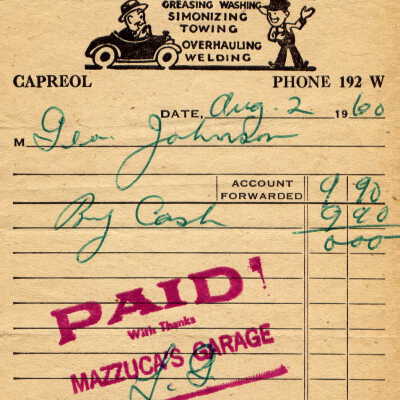 GREASING WASHING
SIMONIZING
TOWING
OVERHAULING
WELDING
CAPREOL PHONE 192 W
DATE, Aug. 2 1960
M Geo. Johnson
ACCOUNT FORWARDED 9 90
By Cash 9 90
000
PAID!
With Thanks
MAZZUCA'S GARAGE